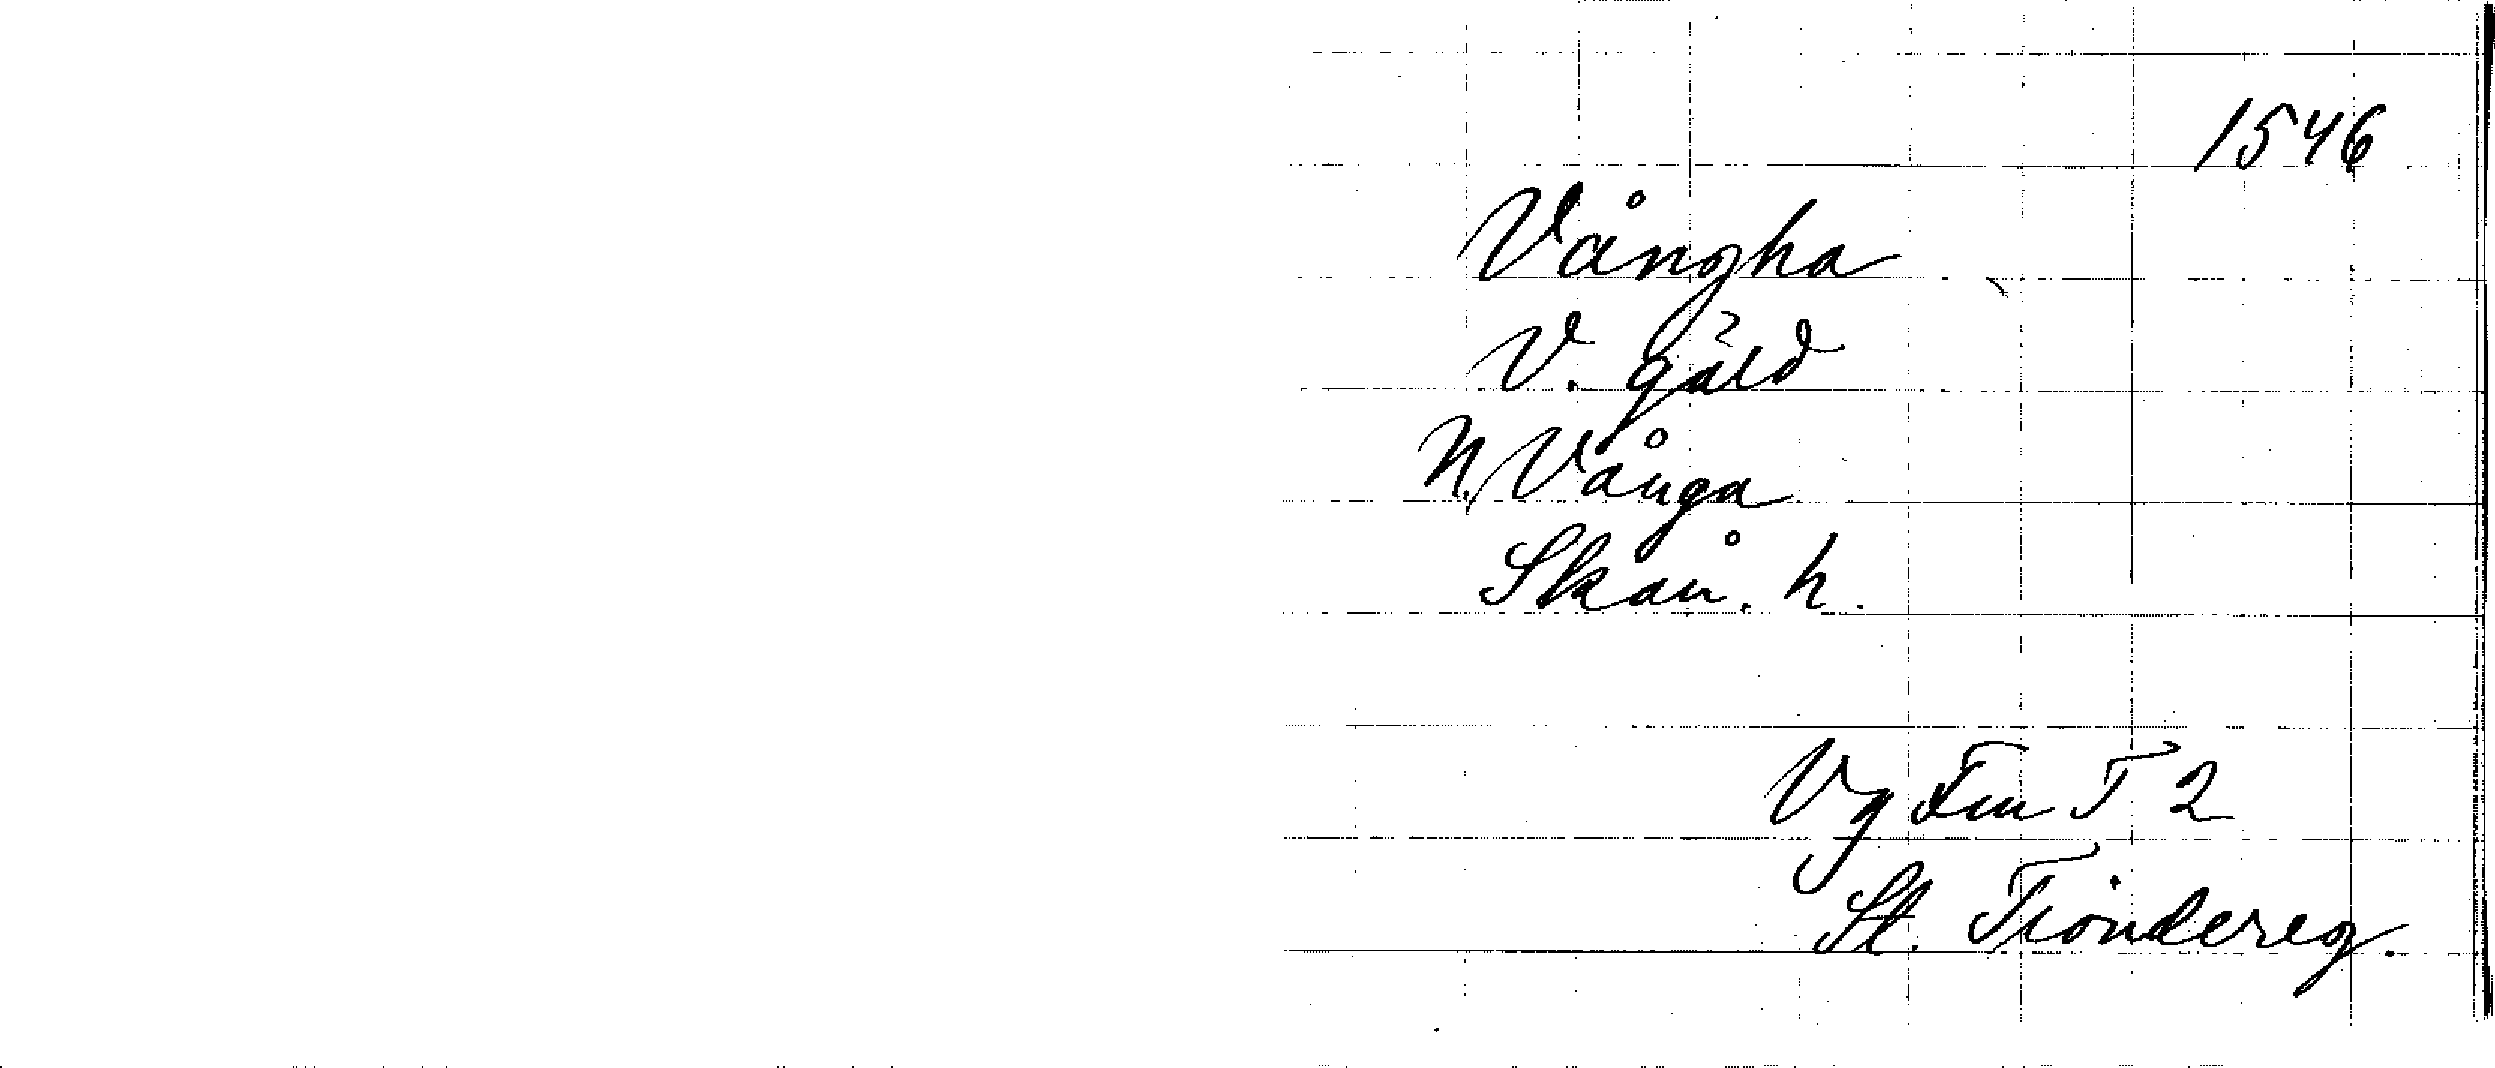 1546
Vångha
V. gäld
N. Vånga
Skån. h.
Vg Fm T 2
St. Tiondereg.